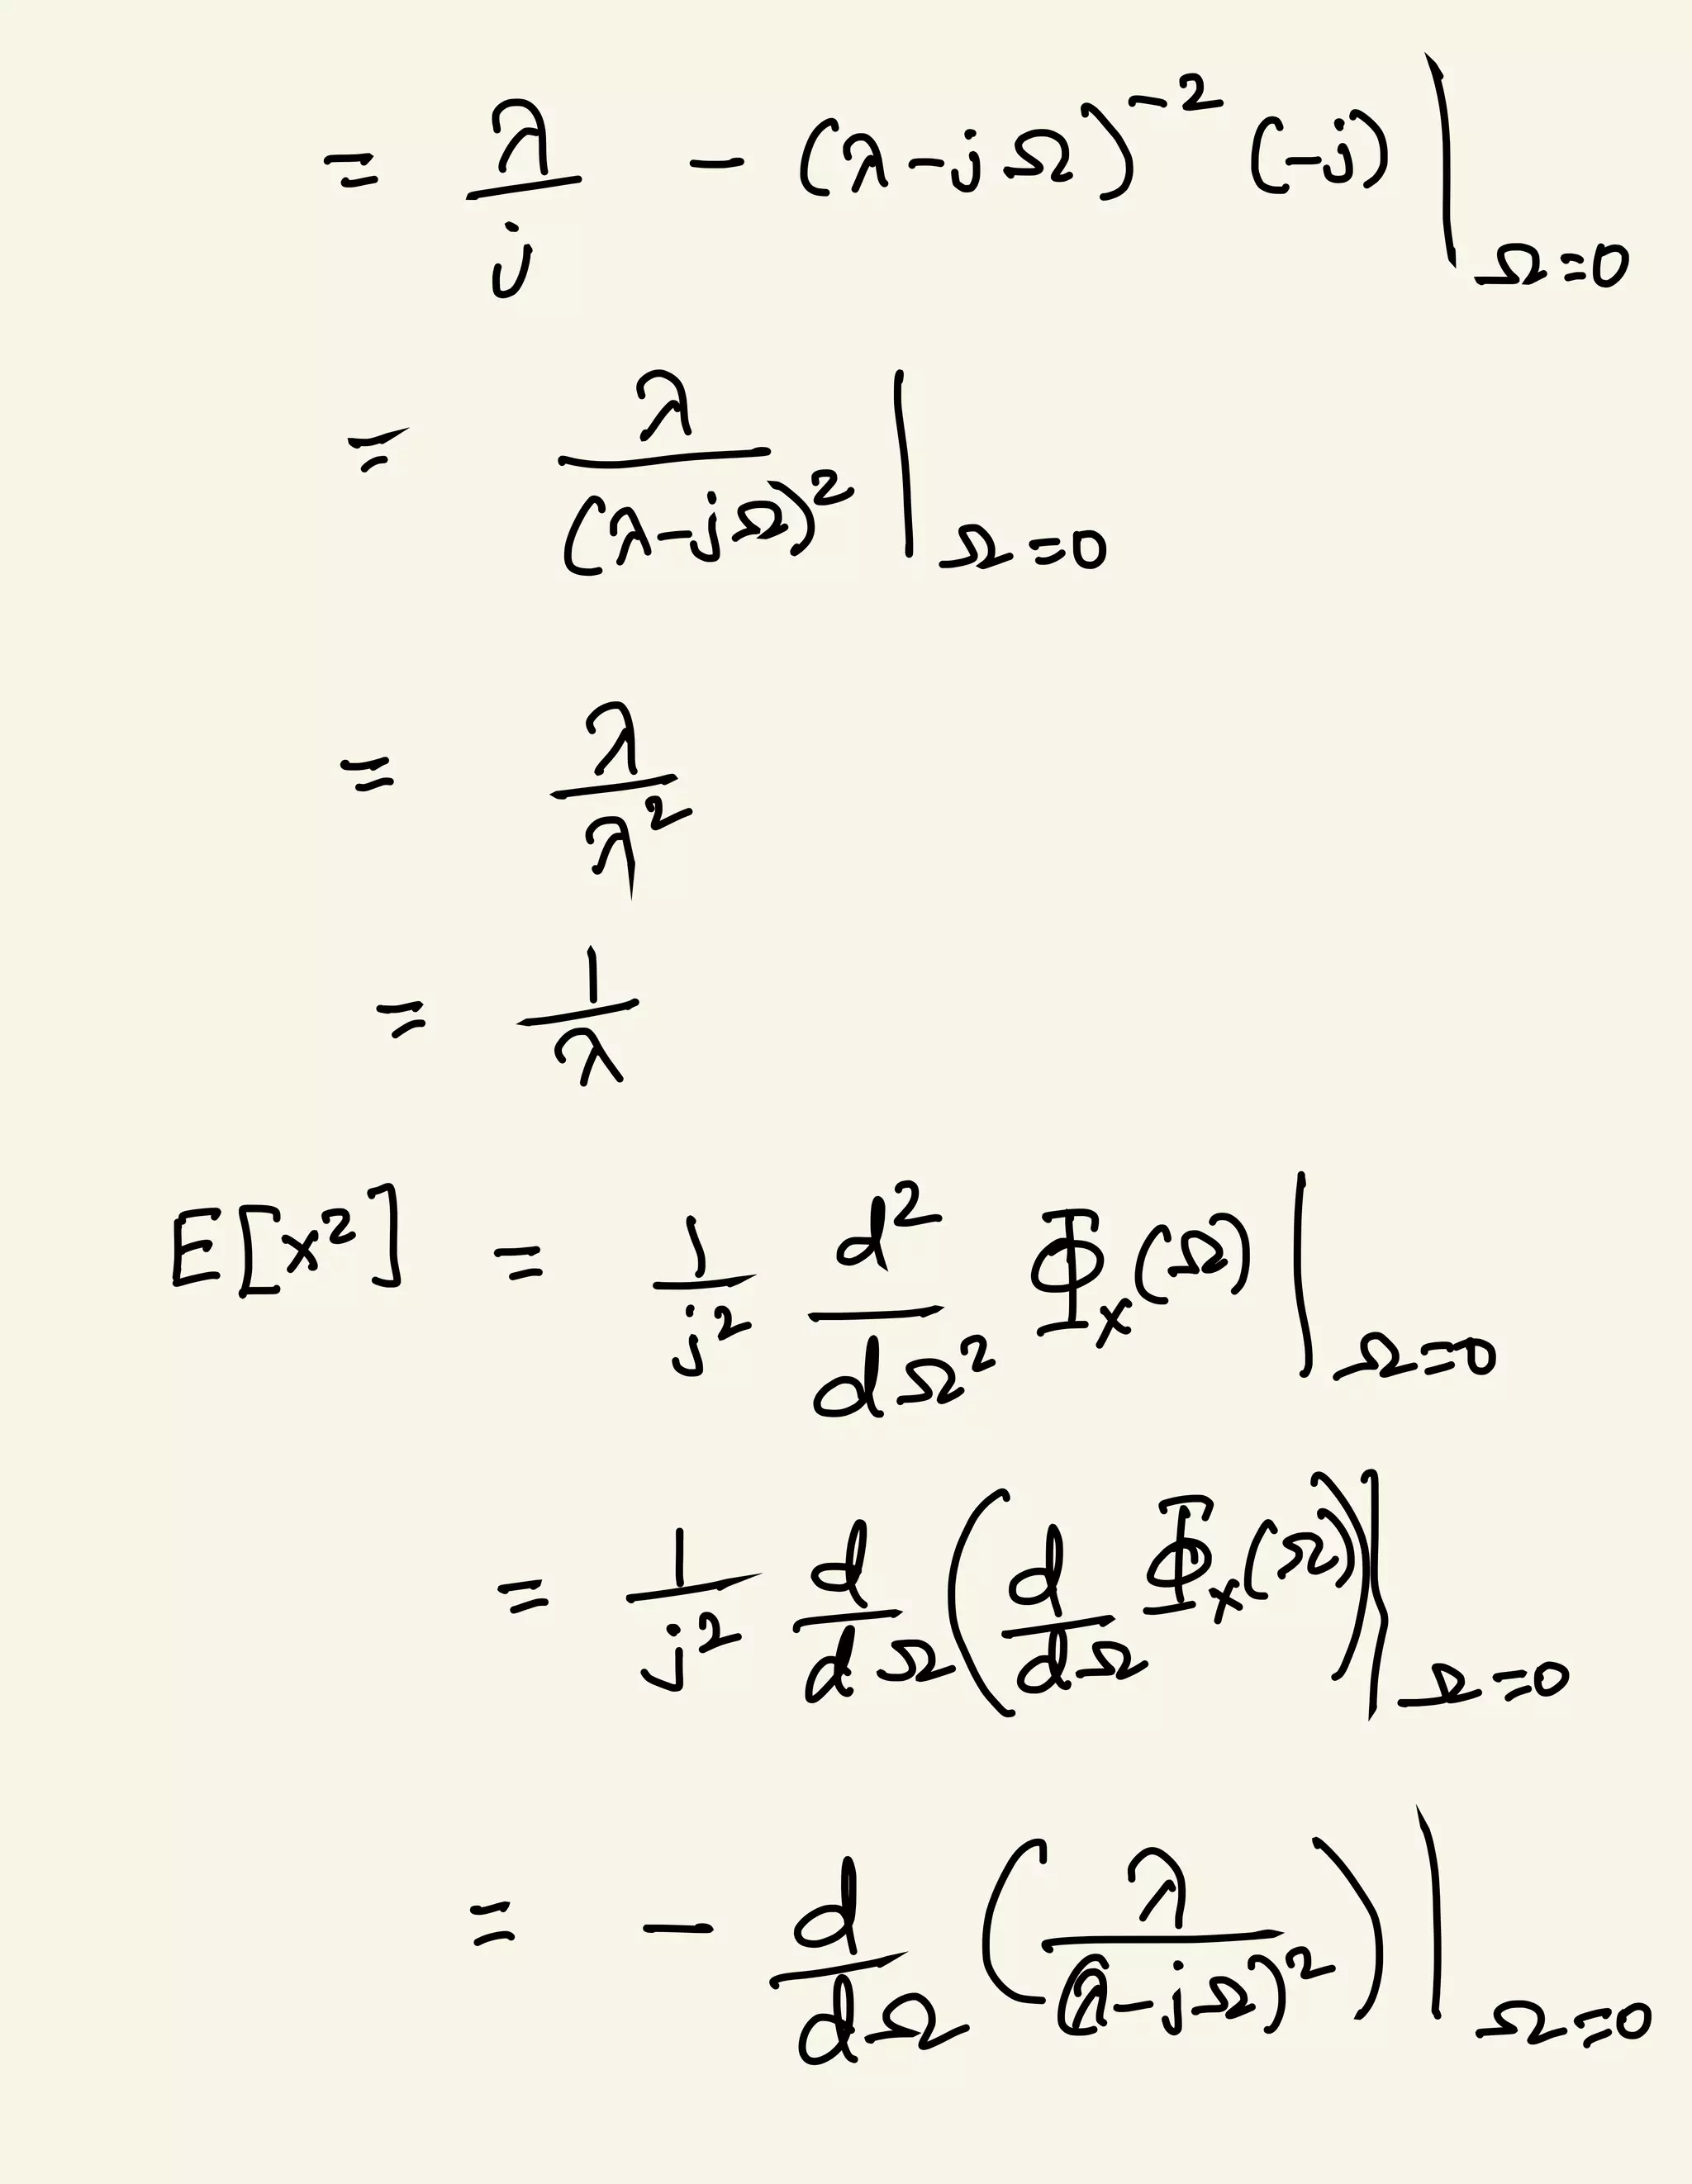 = λ/j - (λ-jΩ)^-2 (-j) |_Ω=0
= λ/(λ-jΩ)^2 |_Ω=0
= λ/λ^2
= 1/λ
E[x^2] = 1/j^2 d^2/dΩ^2 Φ_x(Ω) |_Ω=0
= 1/j^2 d/dΩ (d/dΩ Φ_x(Ω)) |_Ω=0
= - d/dΩ (λ/(λ-jΩ)^2) |_Ω=0